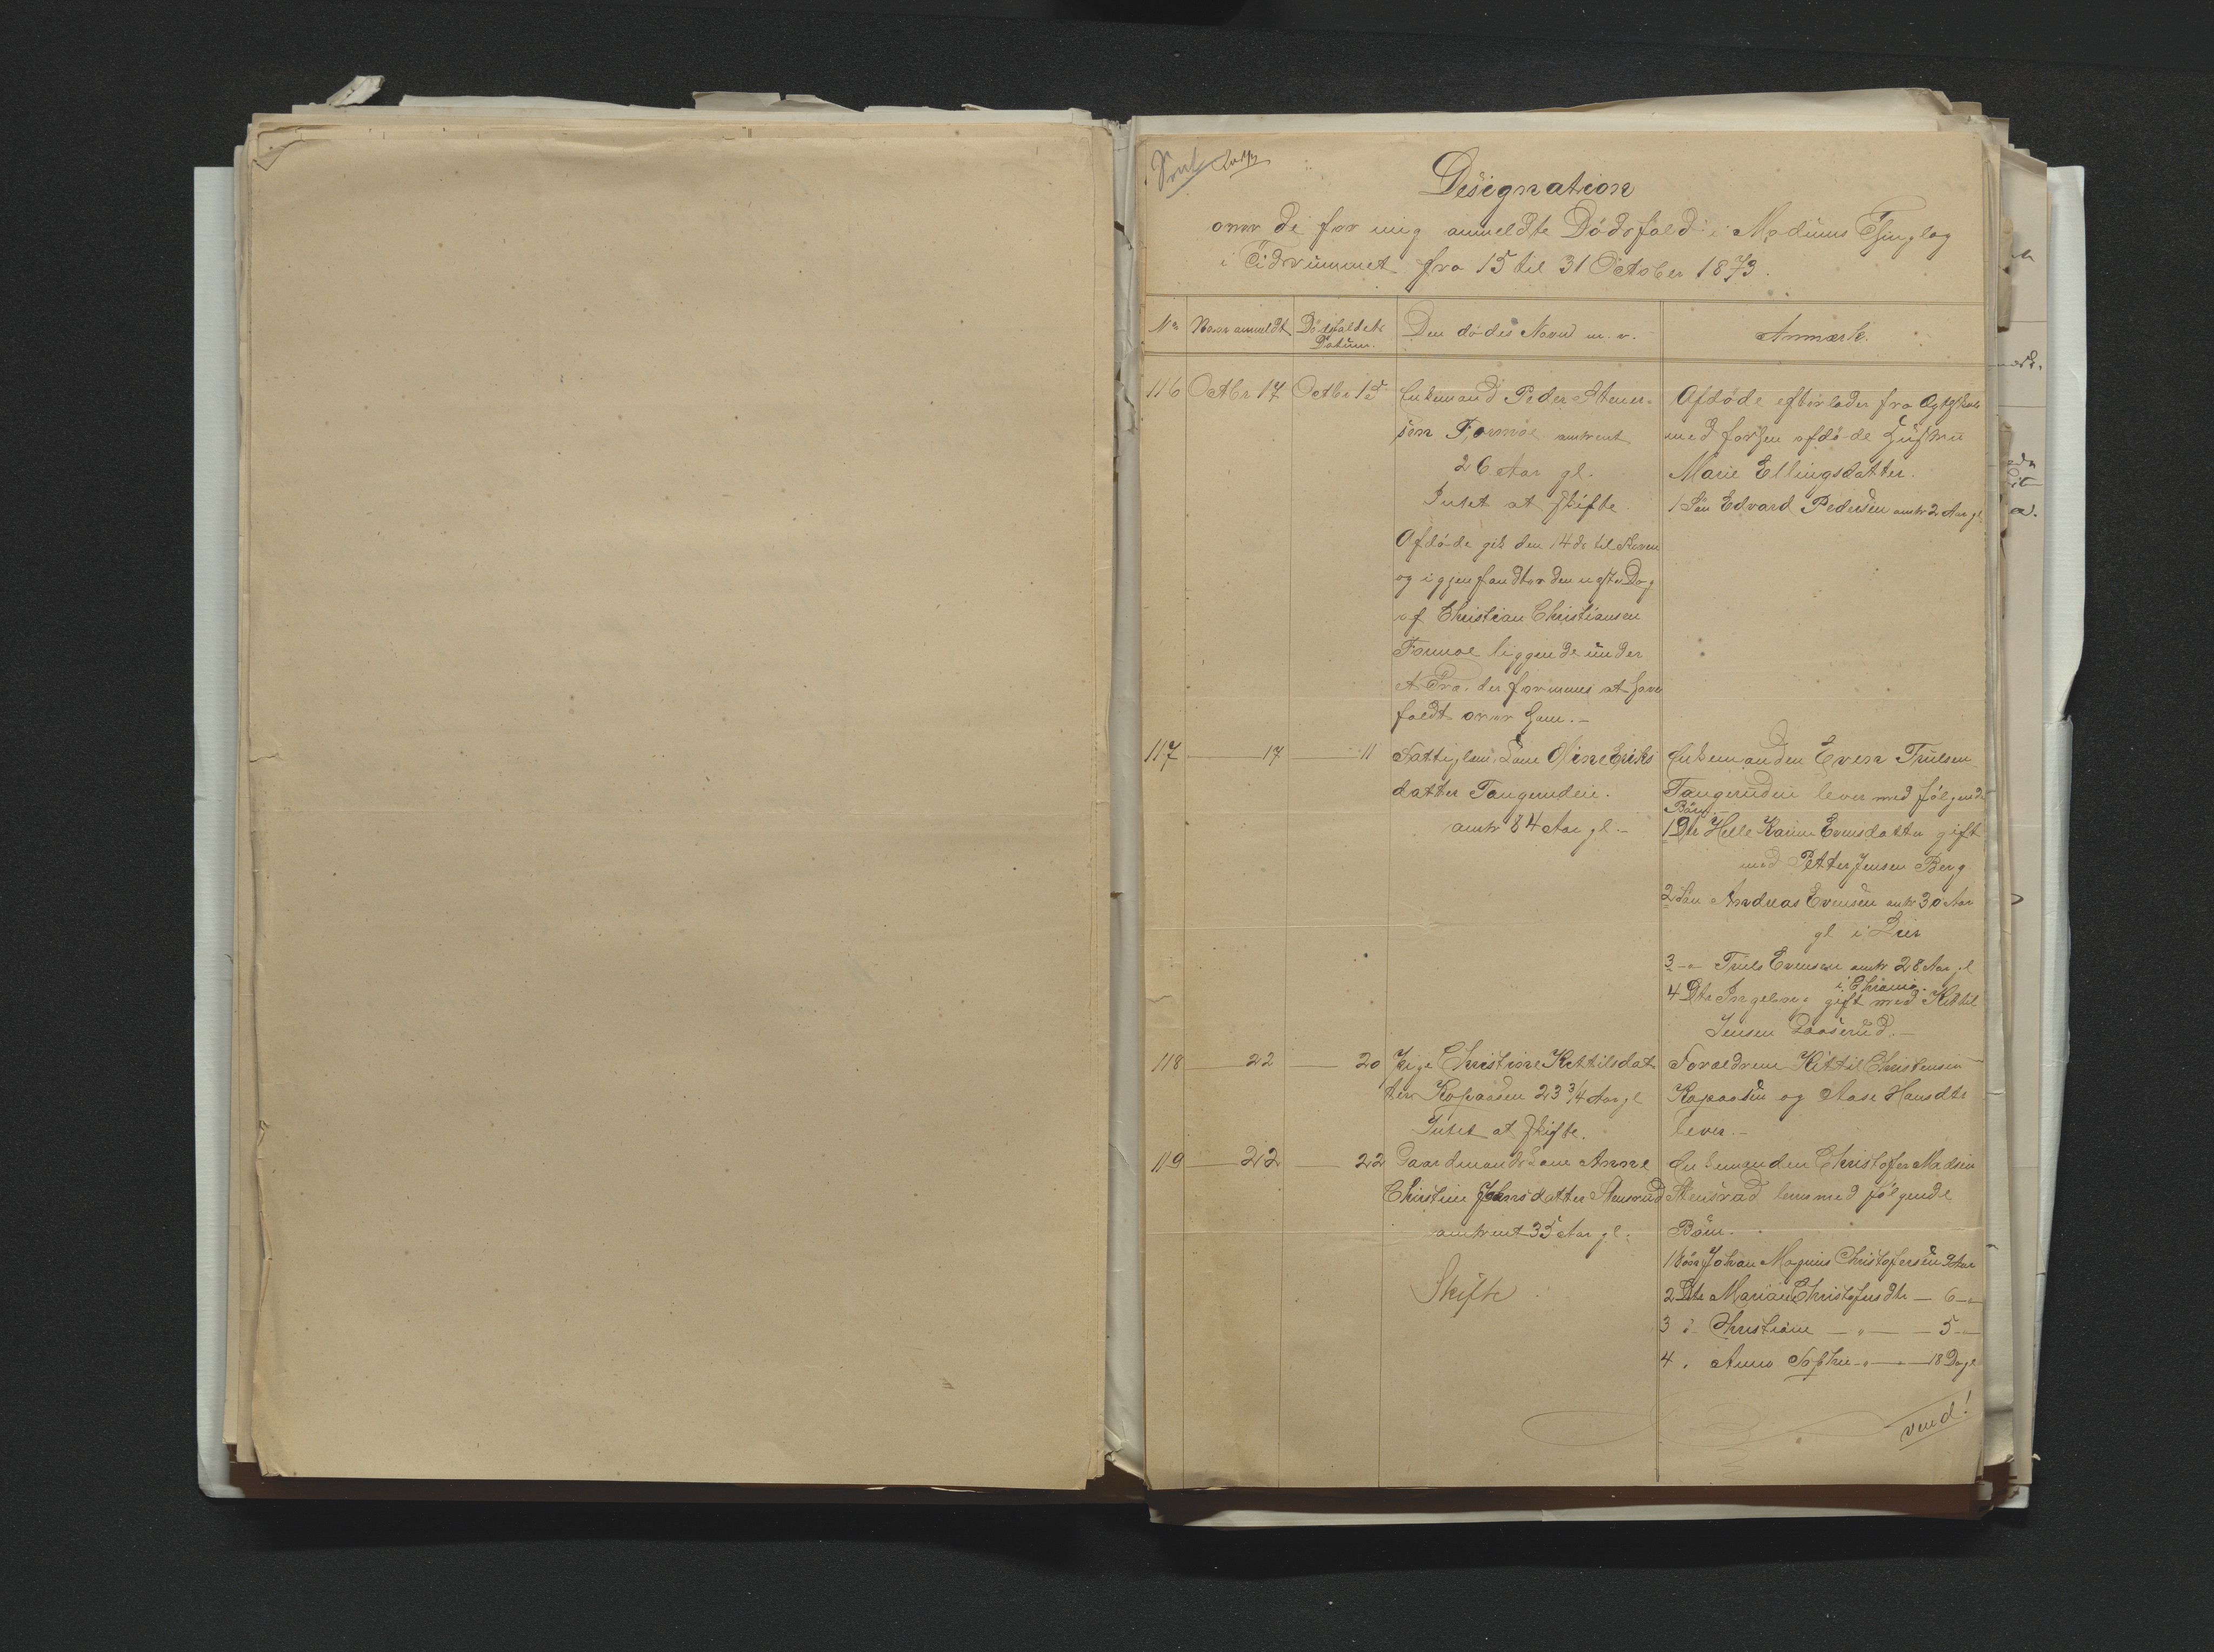 Designation
over de for mig anmeldte Dödsfald i Modums Thinglag
i Tidrummet fra 15 til 31 October 1873.
No Naar anmeldt Dödsfaldets Datum. Den dödes Navn m. v. Anmærk.
116 Octbr 17 Octbr 15
Enkemand Peder Stener-
sen Formoe omtrent
26 Aar gl.
Intet at skifte.
Afdöde gik den 14de til Skoven
og igjenfandtes den næste Dag
af Christian Christiansen
Formoe liggende under
et Træ der formenes at have
faldt over ham.-
Afdöde efterlader fra Ægteskab
med forhen afdöde Hustru
Marie Ellingsdatter.
1 Sön Edvard Pedersen omtr 2 Aar gl.
117 17 11
Fattiglem, Kone Eriks
datter Tangerudeie.
omtr 84 Aar gl.-
Enkemanden Even Trulsen
Tangerudeie lever med fölgende
Börn
1 Dtr Helle Karine Evensdatter gift
med Petter Jensen Berg
2 Sön Andreas Evensen omtr 30 Aar
gl i Lier
3 -"- Truls Evensen omtr 28 Aar gl
i Chrania.
4 Dtr gift med Kittil
Jensen
118 22 20
Pige Christine Kettilsdat
ter Kopaasen 23 3/4 Aar gl
Intet at skifte.
Forældrene Kittil Christensen
Kopaasen og Aase Hansdtr
lever.-
119 22 22
Gaardmandskone Anne
Christine datter Stensrud
omtrent 35 Aar gl.
Skifte
Enkemanden Christofer Madsen
Stensrud lever med fölgende
Börn.
1 Sön Johan Magnus Christofersen 9 Aar
2 Dtr Mariane Christofersdtr - 6 -"-
3 d- Christiane - " - - 5 -"-
4 " Anna Sophie -"- -"- 18 Dage
vend!